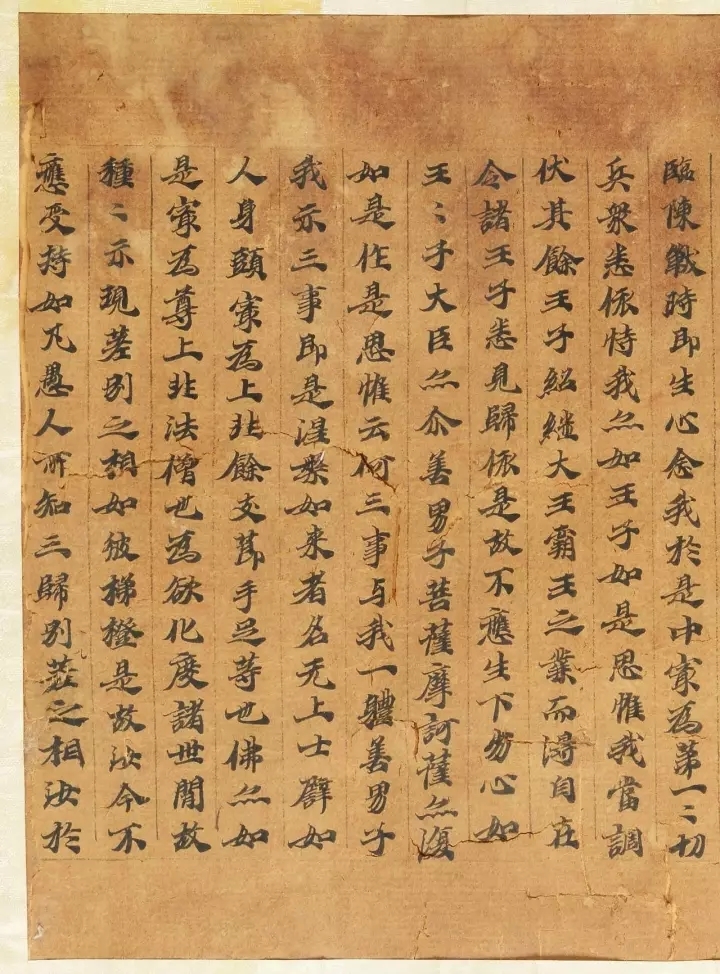 臨陳戰時即生心念我於是中㝡為第一〻切
兵衆悉依恃我亦如王子如是思惟我當調
伏其餘王子紹繼大王霸王之業而得自在
令諸王子悉見歸依是故不應生下劣心如
王〻子大臣亦尒善男子菩薩摩訶薩亦復
如是作是思惟云何三事与我一體善男子
我示三事即是涅槃如来者名无上士譬如
人身頭㝡為上非餘支節手足等也佛亦如
是㝡為尊上非法僧也為欲化度諸世間故
種〻示現差別之相如彼梯橙是故汝今不
應受持如凡愚人所知三歸別差之相汝於